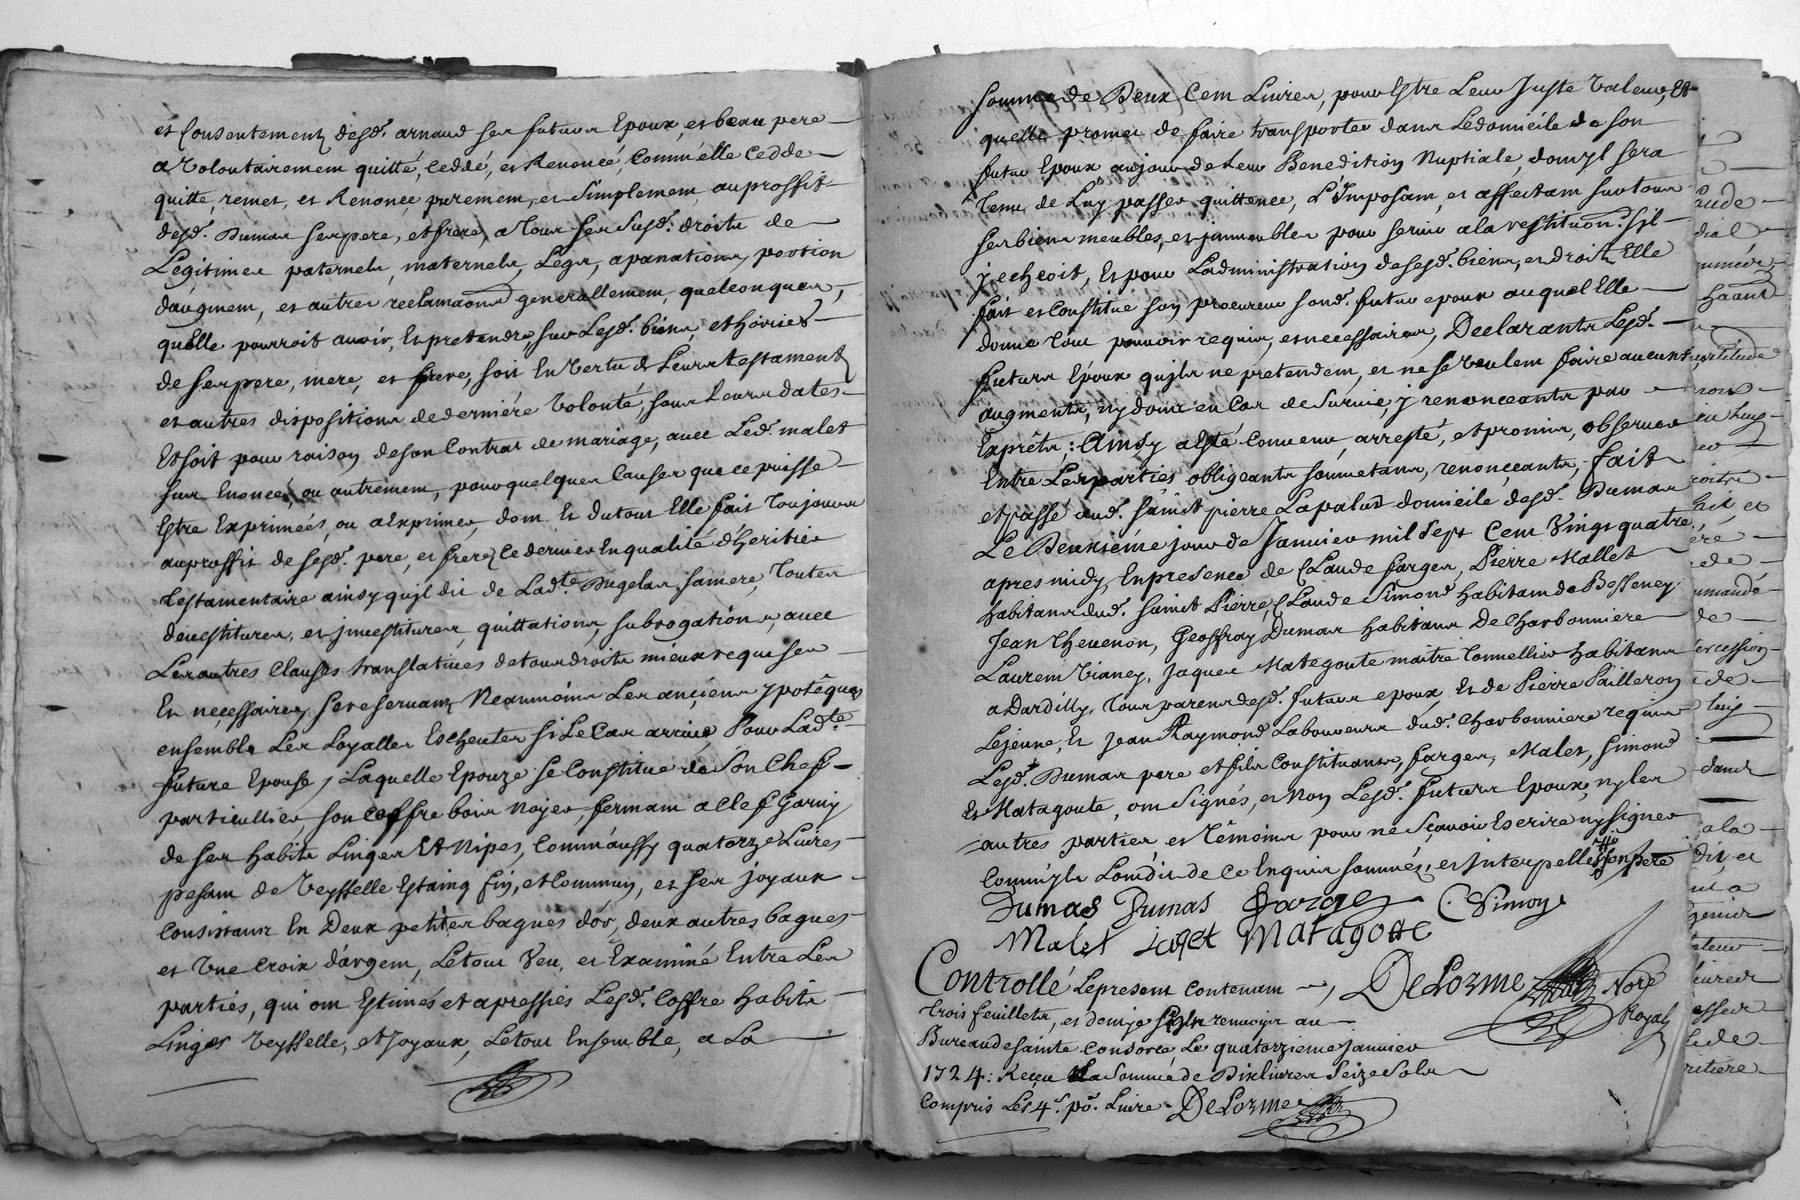 et Consentement desd. arnaud ses futurs Epoux, et beau pere
a Volontairement quitté, Ceddé, et Renoncé, Comm'elle Cedde
quitte, remet, et Renonce purement, et Simplement, au proffit
desd. Dumas ses pere, et frere, a Tous ses Susd. droits de
Legitimes paternels, maternels, Legs, apanations, portion
d'augment, et autres reclamaons generallement, quelconques,
qu'elle pourroit avoir, Et pretendre, sur Lesd. biens, et hoiries
de ses pere, mere, et frere, soit En Vertu de Leurs testaments
et autres dispositions de derniére Volonté, sous Leurs dates
Et soit pour raison de son Contrat de mariage, avec Led. malet
sus Enoncé, ou autrement, pour quelques Causes que ce puisse
Estre Exprimées, ou a Exprimer, dont Et du tout Elle fait Toujours
au proffit de sesd. pere, et frere, Ce dernier En qualité d'Heritier
Testamentaire ainsy qu'jl dit de Lad.te Dugelas, sa mere, Toutes
devestitures, et jnvestitures, quittations, subrogations, avec
Les autres Clauses translatives de tous droits mieux requises
Et neçessaires, se reservant Neanmoins Les ançiens ypotêques
ensemble Les Loyalles Escheutes si Le Cas arrive, Pour Lad.te
future Epouse, Laquelle Epouze se Constitue de Son Chef
particullier, son Coffre bois noyer, fermant a clef, Garny
de ses habits Linges Et Nipes, Comm'aussy quatorze Livres
pesant de Veysselle Estaing fin, et Commun, et ses joyaux
Consistants En Deux petites bagues d'or, deux autres bagues
et Une Croix d'argent, Le tout Veu, et Examiné Entre Les
parties, qui ont Estimés et apressiés Lesd. Coffre habits
Linges Veysselle, et Joyaux, Le tout Ensemble, a La
somme de Deux Cent Livres, pour Estre Leur Juste Valeur, Et
quelle promet de faire transporter dans Le domicile de son
futur Epoux au jour de Leur Benediction Nuptiale, dont jl sera
Tenu de Luy passer quittence, L'Imposant, et affectant sur tous
ses biens meubles, et jmmeubles pour servir a la restituon. s'il
y echeoit, Et pour L'administration de sesd. biens, et droits Elle
fait et Constitue son procureur sond. futur epoux auquel Elle
donne tout pouvoir requis, et neccessaire, Declarants Lesd.
futurs Epoux qu'jls ne pretendent, et ne se Veulent faire aucuns
augments, ny dons en Cas de Survie, y renonceants par
Exprês; Ainsy a Esté Convenu, arresté, et promis, observer
Entre Les parties obligeants soumetans, renonçeants, fait
et passé aud. saint pierre Lapalud domicile desd. Dumas
Le Deuxieme jour de Janvier mil sept Cent Vingt quatre
apres midy, En presence de Claude farges, Pierre Mallet
habitans dud. saint Pierre, Claude Simond habitant de Besseney
Jean Thevenon, Geoffray Dumas habitans De Charbonniere
Laurent Vianey, Jaques Matagoute maitre Tonnellier habitans
a Dardilly, Tous parens desd. futurs epoux, Et de Pierre Pailleron
Lejeune, Et jean Raymond Laboureurs dud. Charbonniere requis
Lesd. Dumas pere et fils Constituans, farges, Malet, Simond
Et Matagoute, ont Signés, et Non Lesd. futurs Epoux, ny les
autres parties, et Têmoins pour ne Sçavoir Escrire ny signer
Comm'jls L'ont dit de Ce Enquis sommés, et Interpellés
Dumas Dumas farges C Simond
Malet Matagote
Controllé Le present Contenant DeLorme Nore Royal
trois feuillets, et demy
Bureau de sainte Consorce, Le quatorzieme Janvier
1724: Receu La Somme de Dix livres Seize Sols
Compris Les 4s. pr. Livre. DeLorme